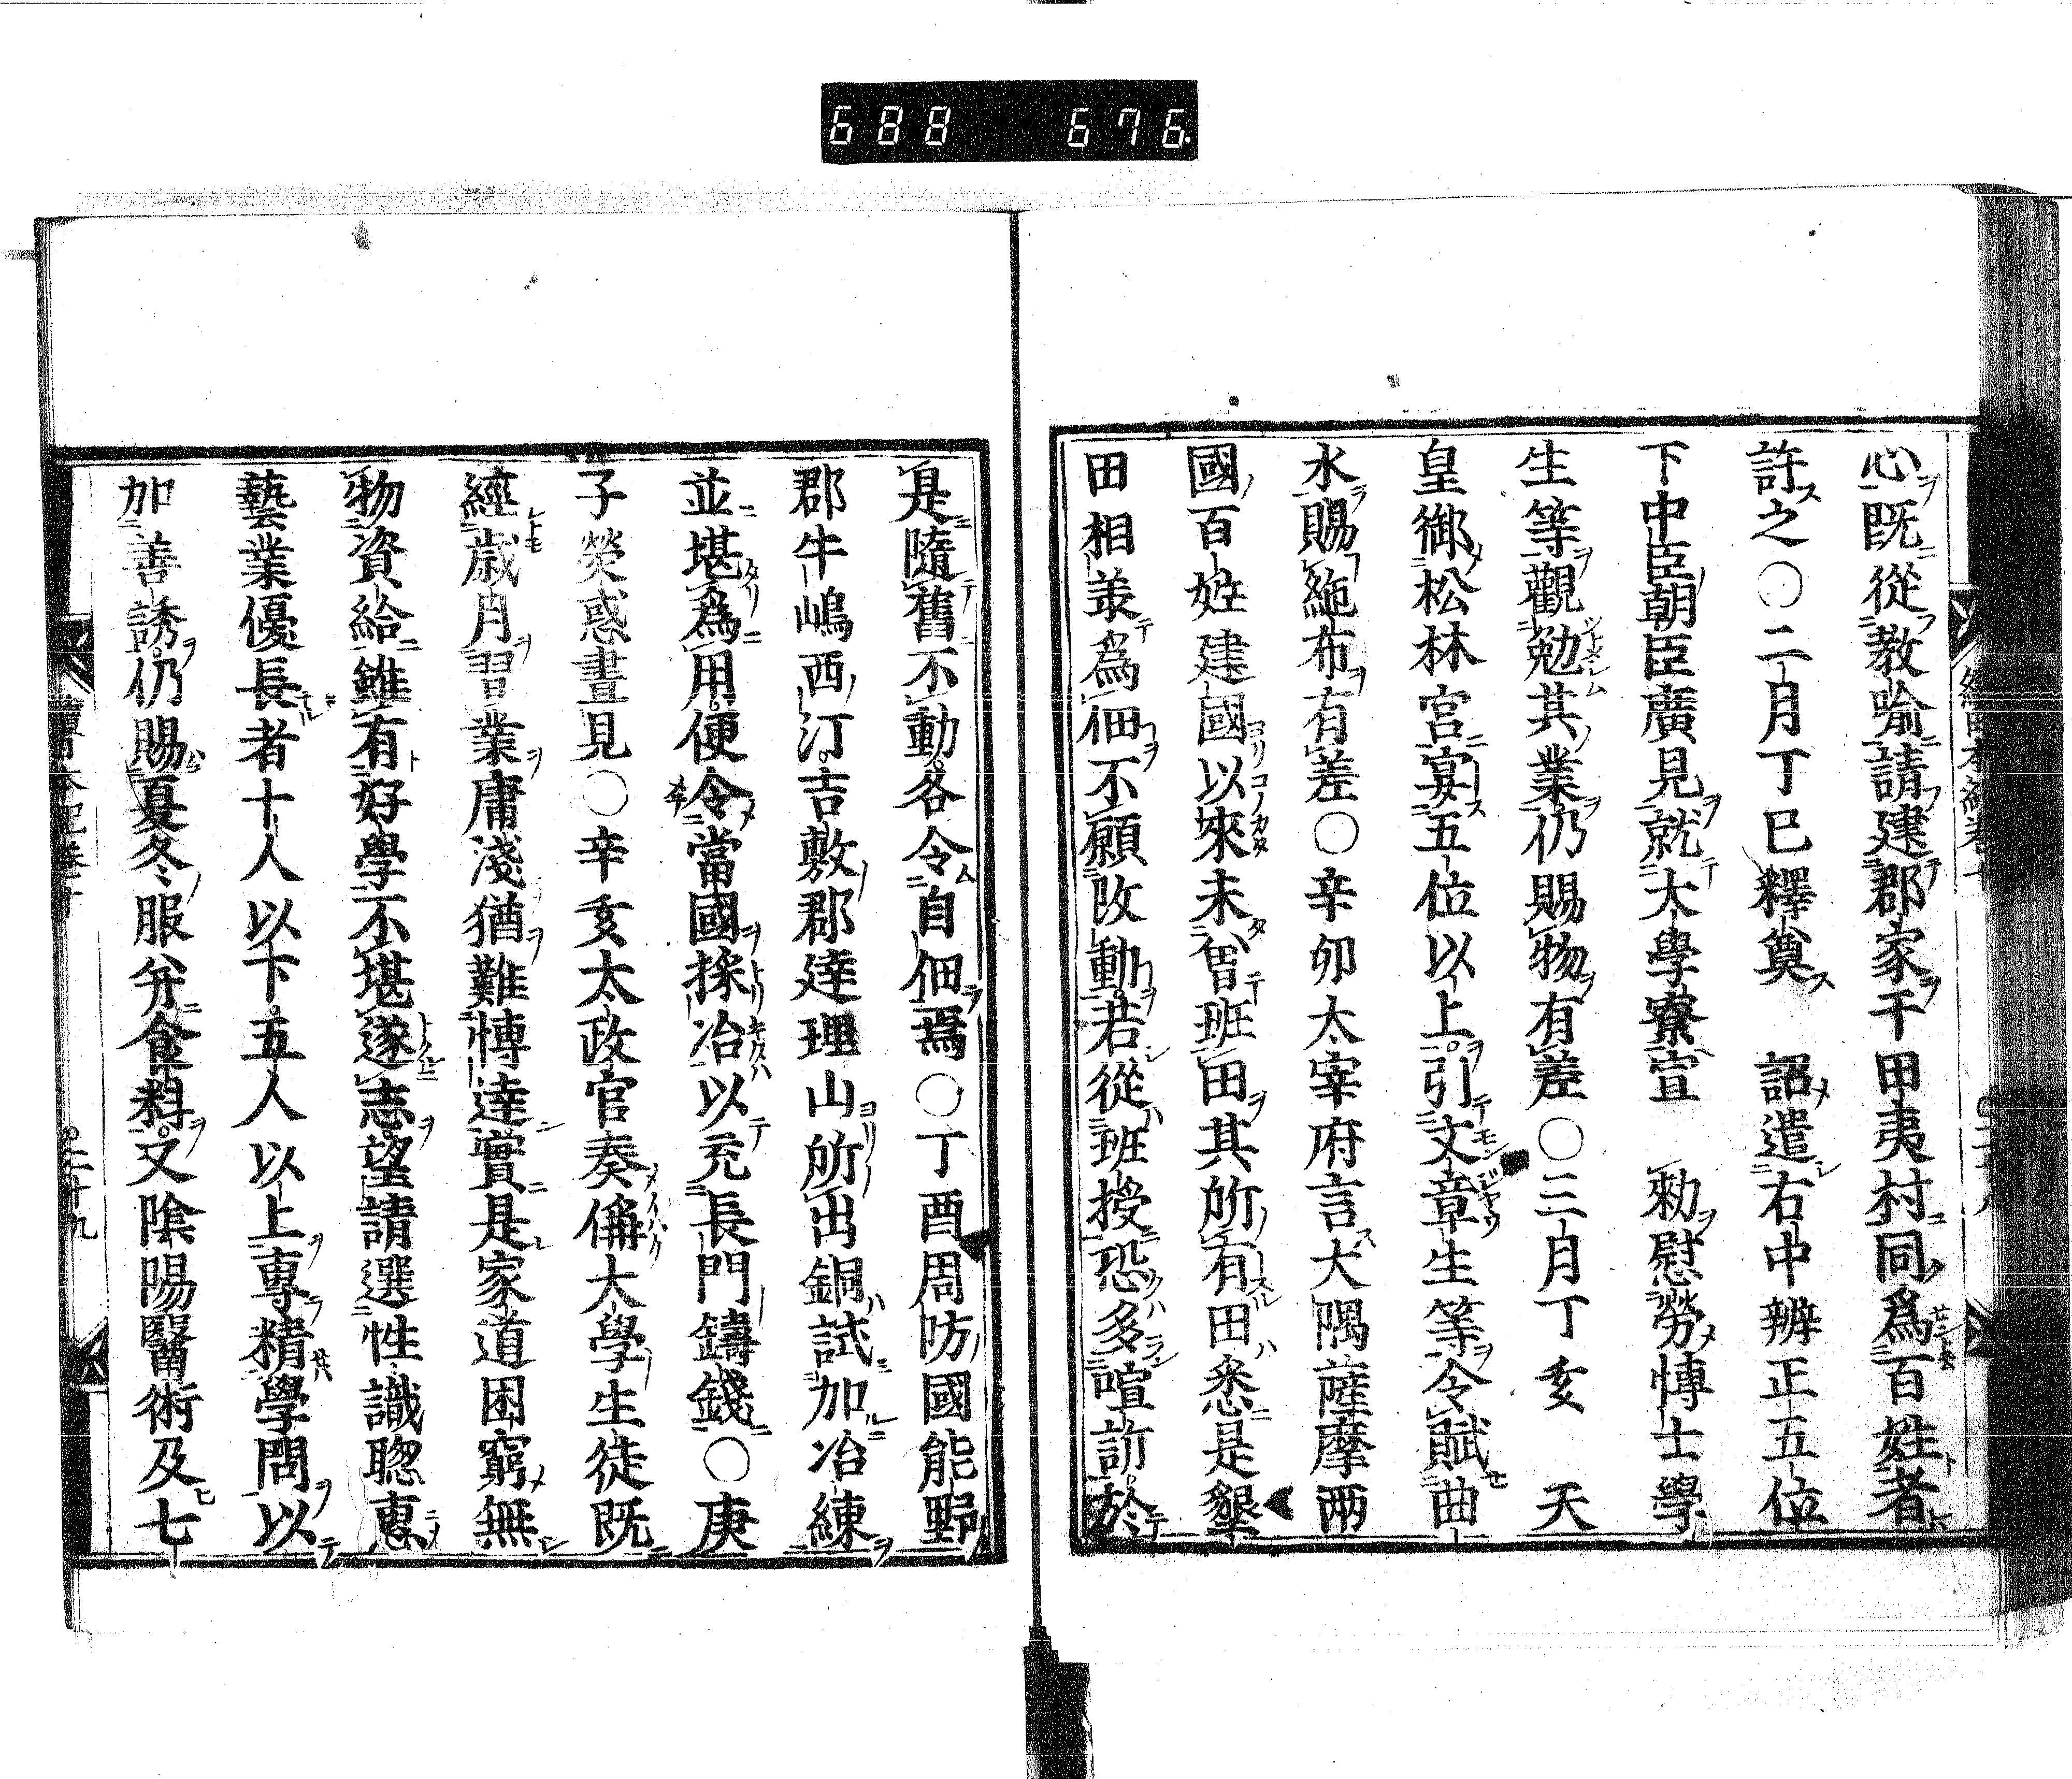 688 676
心既從教喩請建郡家于甲夷村同爲百姓者
許之〇二月丁巳釋奠 詔遣右中辨正五位
下中臣朝臣廣見就大學寮宣 勑慰勞博士學
生等觀勉其業仍賜物有差〇三月丁亥 天
皇御松林宮宴五位以上引文章生等令賦曲
水賜絁布有差〇辛卯太宰府言大隅薩摩兩
國百姓建國以來未曾班田其所有田悉是墾
田相羕爲佃不願改動若從班授恐多喧訴於
是隨舊不動各令自佃焉〇丁酉周防國能野
郡牛嶋西汀吉敷郡達理山所出銅試加冶練
並堪爲用便令當國採冶以充長門鑄錢〇庚
子熒惑晝見〇辛亥太政官奏偁大學生徒既
經歳月習業庸淺猶難博達實是家道困窮無
物資給雖有好學不堪遂志望請選性識聰惠
藝業優長者十人以下五人以上專精學問以
加善誘仍賜夏冬服并食料又陰陽醫術及七